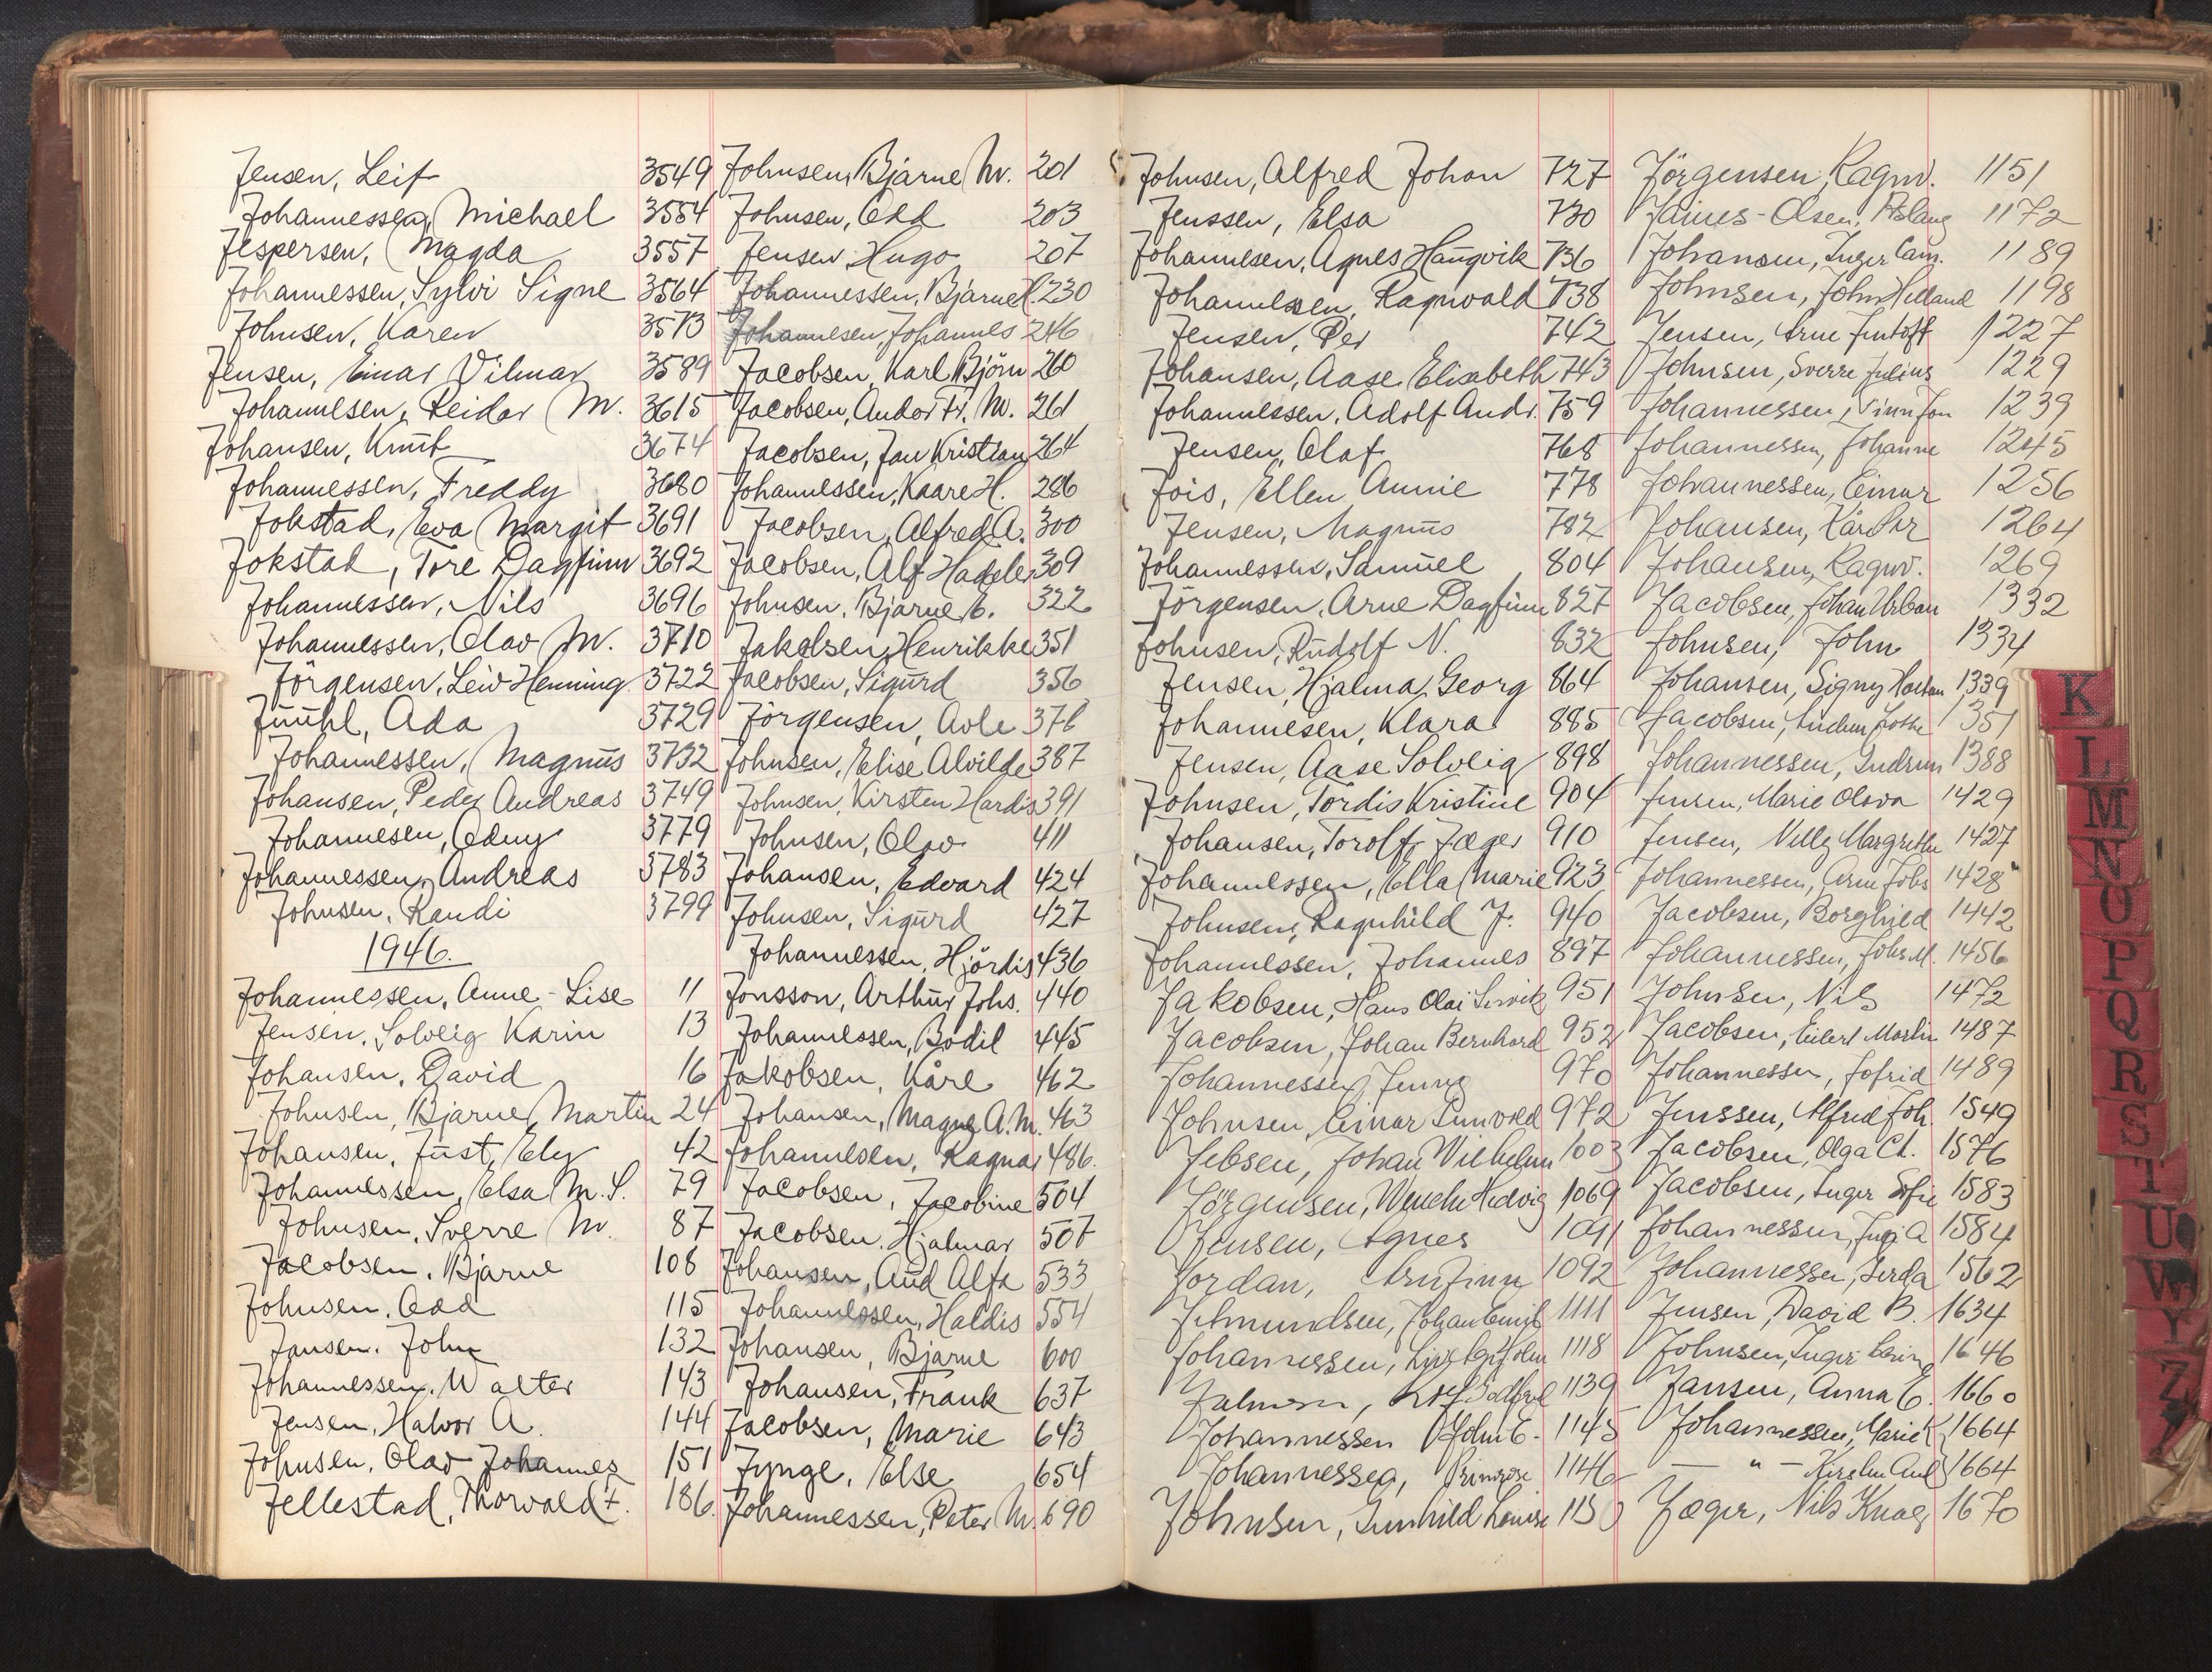 Jensen, Leif 3549
Johannessen, Michael 3554
Jespersen, Magda 3557
Johannessen, Sylvi Signe 3564
Johnsen, Karen 3573
Jensen, Einar Vilmar 3589
Johannesen, Reidar M. 3615
Johansen, Knut 3674
Johannessen, Freddy 3680
Jokstad, Eva Margit 3691
Jokstad, Tore Dagfinn 3692
Johannessen, Nils 3696
Johannessen, Olav M. 3710
Jörgensen, Leiv Henning 3722
Juuhl, Ada 3729
Johannessen, Magnus 3732
Johansen, Peder Andreas 3749
Johannesen, Odny 3779
Johannessen, Andreas 3783
Johnsen, Randi 3799
1946.
Johannessen, Anne-Lise 11
Jensen, Solveig Karin 13
Johansen, David 16
Johnsen, Bjarne Martin 24
Johansen, Just, Ely 42
Johannessen, Elsa M. S. 79
Johnsen, Sverre M. 87
Jacobsen, Bjarne 108
Johnsen, Odd 115
Jansen, John 132
Johannessen, Walter 143
Jensen, Halvor A. 144
Johnsen, Olav Johannes 151
Jellestad, Thorvald 186.
Johnsen, Bjarne M. 201
Johnsen, Odd 203
Jensen Hugo 207
Johannessen, Bjarne 230
Johannesen, Johannes 246
Jacobsen, Karl Björn 260
Jacobsen, Andor Fr. M. 261
Jacobsen, Jan Kristian 264
Johannessen, Kaare H. 286
Jacobsen, Alfred A. 300
Jacobsen, Alf 309
Johnsen, Bjarne E. 322
Jakobsen, Henrikke 351
Jacobsen, Sigurd 356
Jörgensen, Avle 376
Johnsen, Elise Alvilde 387
Johnsen, Kirsten Hardis 391
Johnsen, Olav 411
Johansen, Edvard 424
Johnsen, Sigurd 427
Johannessen, Hjördis 436
Jonsson, Arthur Johs. 440
Johannessen, Bodil 445
Jakobsen, Kåre 462
Johansen, Magne A. M. 463
Johannesen, Ragnar 486.
Jacobsen, Jacobine 504
Jacobsen, Hjalmar 507
Johansen, Aud Alfa 533
Johannessen, Haldis 554
Johansen, Bjarne 600
Johansen, Frank 637
Jacobsen, Marie 643
Jynge, Else 654
Johannessen, Peter M. 690
Johnsen, Alfred Johan 727
Jenssen, Elsa 730
Johannesen, Agnes Haugvik 736
Johannessen, Ragnvald 738
Jensen, Per 742
Johansen, Aase Elisabeth 743
Johannessen, Adolf Andr. 759
Jensen, Olaf 768
Jois, Ellen Annie 778
Jensen, Magnus 782
Johannessen, Samuel 804
Jörgensen, Arne Dagfinn 827
Johnsen, Rudolf N. 832
Jensen, Hjalmar Georg 864
Johannesen, Klara 885
Jensen, Aase Solveig 898
Johnsen, Tordis Kristine 904
Johansen, Torolf Jæger 910
Johannessen, Ella Marie 923
Johnsen, Ragnhild J. 940
Johannessen, Johannes 897
Jakobsen, Hans Olai 951
Jacobsen, Johan Bernhard 952
Johannessen, Jenny 970
Johnsen, Einar Sunvold 972
Jebsen, Johan Wilhelm 1003
Jörgensen, Wenche Hedvig 1069
Jensen, Agnes 1091
Jordan, Arnfinn 1092
Johan Emil 1111
Johannessen, 1118
1139
Johannessen John E. 1145
Johannessen, Primrose 1146
Johnsen, Gunhild Louise 1150
Jörgensen, Ragnv. 1151
Jaines-Olsen, Aslaug 1172
Johansen, Inger Cam. 1189
Johnsen, John Helland 1198
Jensen, Arne Juntoft 1227
Johnsen, Sverre Julius 1229
Johannessen, Finn Jon 1239
Johannessen, Johanne 1245
Johannessen, Einar 1256
Johansen, Kår Per 1264
Johansen, Ragnv. 1269
Jacobsen, Johan Urban 1332
Johnsen, John 1334
Johansen, Signy 1339
Jacobsen, 1351
Johannessen, Gudrun 1388
Jensen, Marie Olava 1429
Jensen, Nelly Margrethe 1427
Johannessen, Arne Johs 1428
Jacobsen, Borghild 1442
Johannessen, Johs M. 1456
Johnsen, Nils 1472
Jacobsen, Eilert Martin 1487
Johannessen, Jofrid 1489
Jenssen, Alfred Joh. 1549
Jacobsen, Olga Ch. 1576
Jacobsen, Inger Sofie 1583
Johannessen, A 1584
Johannessen, Gerda 1562
Jensen, David B. 1634
Johnsen, Inger 1646
Jansen, Anna E. 1660
Johannessen, Marie K 1664
— " — Kirsten Aud 1664
Jæger, Nils Knag 1670
K
L
M
N
O
P
Q
R
S
T
U
W
Y
Z